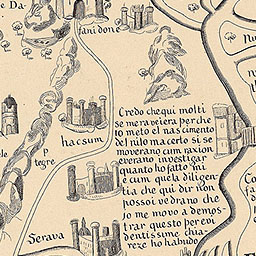 e Da-
fanidone
Nu
Credo che qui molti
se meraveiera perche
io meto el nascimento
del nilo ma certo si se
moverano cum raxion
e verano investigar
quanto ho fatto mi
e cum quela diligen-
tia che qui dir non
possoi vedrano che
io me movo a demos-
trar questo per evi
dentissime chia-
reze ho habudo
hacsum
ele
p
tegre
Co
fa
Serava